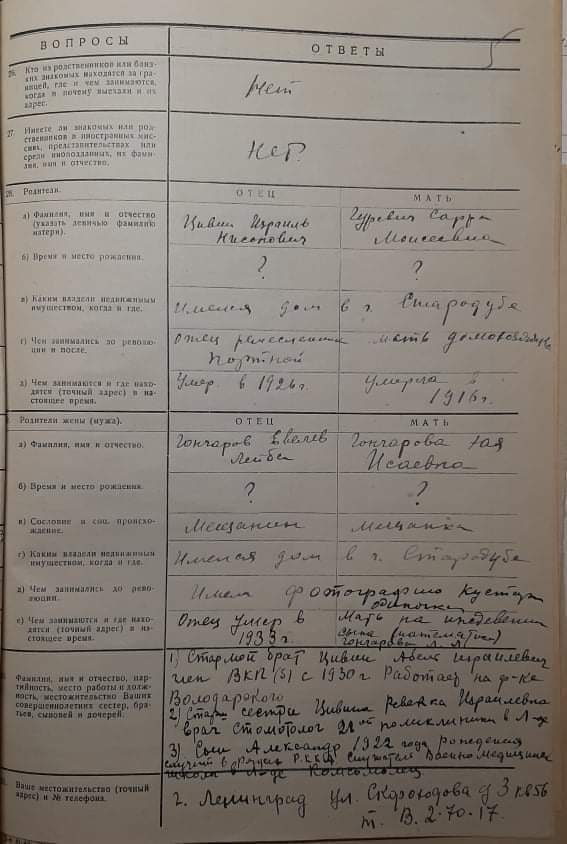 ВОПРОСЫ
ОТВЕТЫ
26. Кто из родственников или близ-
ких знакомых находятся за гра-
ницей, где и чем занимаются,
когда и почему выехали и их
адрес.
Нет
27. Имеете ли знакомых или род-
ственников в иностранных мис-
сиях, представительствах или
среди иноподданных, их фами-
лия, имя и отчество.
Нет.
28. Родители.
ОТЕЦ
МАТЬ
а) Фамилия, имя и отчество
(указать девичью фамилию
матери).
Цивин Израиль
Нисонович
Гуревич Сарра
Моисеевна
б) Время и место рождения.
?
?
в) Каким владели недвижимым
имуществом, когда и где.
Имелся дом в г. Стародубе
г) Чем занимались до револю-
ции и после.
Отец ремесленник
Портной
мать домохозяйка
д) Чем занимаются и где нахо-
дятся (точный адрес) в на-
стоящее время.
Умер в 1926г.
умерла в
1916г.
Родители жены (мужа).
ОТЕЦ
МАТЬ
а) Фамилия, имя и отчество.
Гончаров
Лейба
Гончарова
Исаевна
б) Время и место рождения.
?
?
в) Сословие и соц. происхо-
ждение.
Мещанин
мещанка
г) Каким владели недвижимым
имуществом, когда и где.
Имелся дом в г. Стародубе
д) Чем занимались до рево-
люции.
Имел фотографию Кустарь
одиночка
е) Чем занимаются и где нахо-
дятся (точный адрес) в на-
стоящее время.
Отец умер в
1933г.
Мать на иждевении
сына (математик)
Гончарова
Фамилия, имя и отчество, пар-
тийность, место работы и долж-
ность, местожительство Ваших
совершеннолетних сестер, бра-
тьев, сыновей и дочерей.
1) Старший брат Цивин Абель Израилевич
член ВКП(б) с 1930г Работает на ф-ке
Володарского
2) сестра Цивина Ревекка Израилевна
врач стоматолог 21ой поликлиники в Л-де
3) Сын Александр 1922 года рождения
служит в Рядах РККА слушатель Военно медицинск
школа в Л-де Комсомолец
Ваше местожительство (точный
адрес) и № телефона.
г. Ленинград ул. Скороходова д 3 кв 56
т. В. 2-70-17.